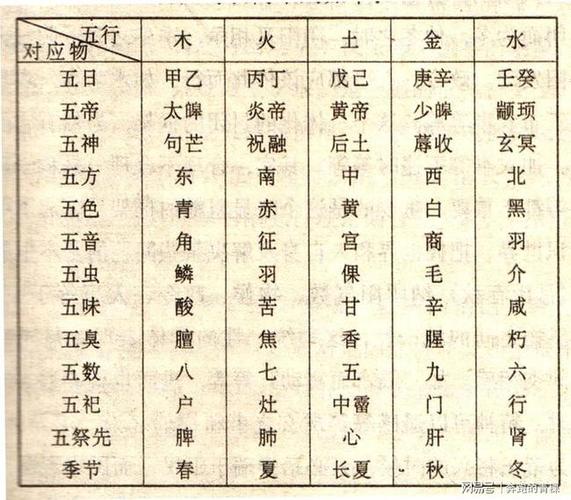 五行 木 火 土 金 水
对应物
五日 甲乙 丙丁 戊己 庚辛 壬癸
五帝 太皞 炎帝 黄帝 少皞 颛顼
五神 句芒 祝融 后土 蓐收 玄冥
五方 东 南 中 西 北
五色 青 赤 黄 白 黑
五音 角 征 宫 商 羽
五虫 鳞 羽 倮 毛 介
五味 酸 苦 甘 辛 咸
五臭 膻 焦 香 腥 朽
五数 八 七 五 九 六
五祀 户 灶 中霤 门 行
五祭先 脾 肺 心 肝 肾
季节 春 夏 长夏 秋 冬
网易号|奔跑的青稞